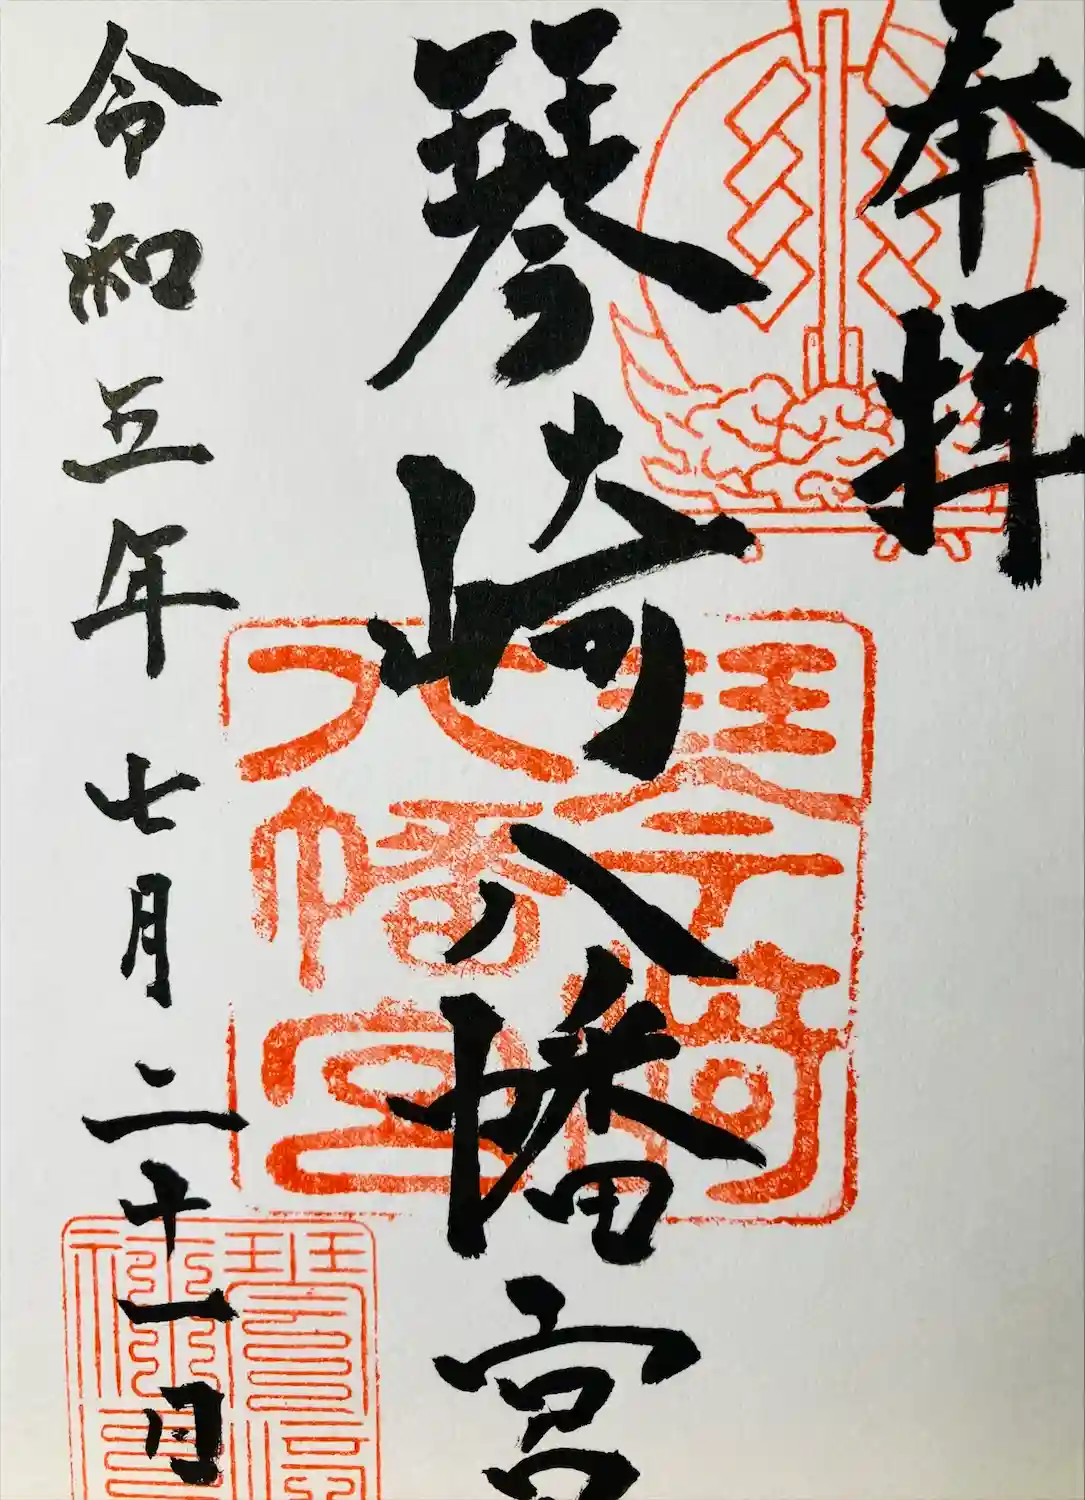 奉拝
琴崎八幡宮
琴崎
八幡宮
令和五年七月二十一日